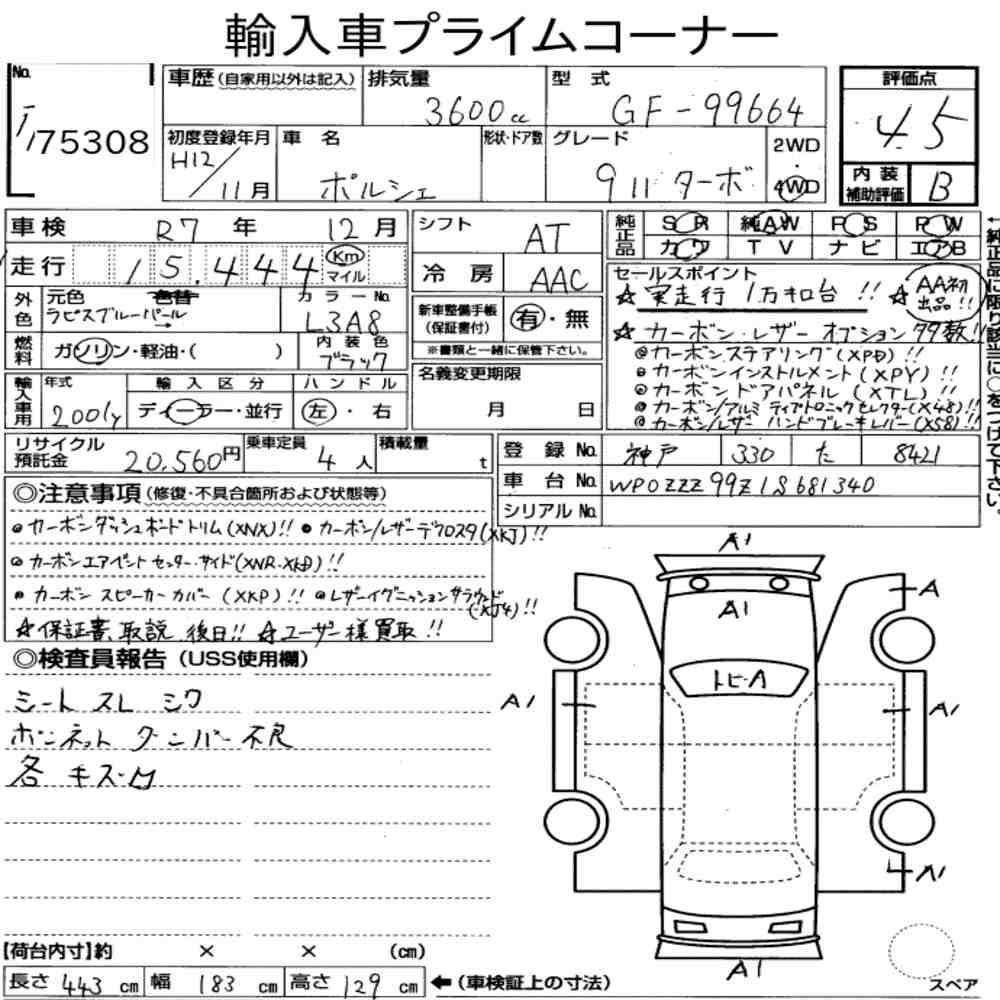 輸入車プライムコーナー
No.
75308
車歴(自家用以外は記入)
排気量
3600cc
型式
GF-99664
評価点
4.5
初度登録年月
H12/11月
車名
ポルシェ
形状・ドア数
グレード
911 ターボ
2WD
・
4WD
内装
補助評価
B
車検 R7年 12月
シフト AT
純正品
SR 純AW PS PW
カワ TV ナビ エアB
走行 15,444 Km
マイル
冷房 AAC
セールスポイント
☆実走行 1万キロ台 !! ☆AA初出品!!
外色
元色 色替
ラピスブルーパール
カラーNo.
L3A8
新車整備手帳
(保証書付)
有・無
※書類と一緒に保管下さい。
☆カーボン・レザー オプション 多数!!
◎カーボンステアリング(XPD)!!
◎カーボンインストルメント(XPY)!!
◎カーボンドアパネル(XTL)!!
◎カーボン/アルミ ティプトロニックセレクター(X48)!!
◎カーボン/レザー ハンドブレーキレバー(X58)!!
燃料
ガソリン・軽油・( )
内装色
ブラック
名義変更期限
月 日
輸入車用
年式
2001y
輸入区分
ディーラー・並行
ハンドル
左・右
←純正品に限り該当に○をつけて下さい。
リサイクル
預託金
20,560円
乗車定員
4人
積載量
t
登録No. 神戸 330 た 8421
車台No. WP0ZZZ99Z1S681340
シリアルNo.
◎注意事項(修復・不具合箇所および状態等)
◎カーボンダッシュボードトリム(XNX)!! ●カーボン/レザーデフロスタ(XKJ)!!
◎カーボンエアベントセンター・サイド(XNR・XKD)!!
●カーボンスピーカーカバー(XKP)!! ◎レザーイグニッションサラウンド(XJ4)!!
☆保証書、取説 後日!! ☆ユーザー様買取!!
◎検査員報告(USS使用欄)
シート スレ シワ
ボンネット ダンパー不良
各 キズ・凹
A1
A1
A
トビ-A
A1
A1
A1
A1
【荷台内寸】約 × × (cm)
長さ 443 cm 幅 183 cm 高さ 129 cm ←(車検証上の寸法)
スペア